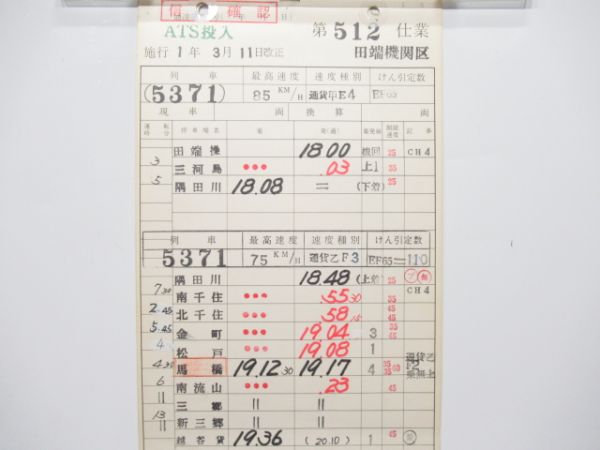 信 確認
ATS投入
第 512 仕業
施行 1 年 3月 11日改正
田端機関区
列車 最高速度 速度種別 けん引定数
(5371) 85 KM/H 通貨甲E4 EF65
現車 両 換算 両
運転 時分 停車場名 着 発(通) 着発線 制限速度 記事
田端操 18.00 機回 25 CH4
3 三河島 ••• .03 上1 35
5 隅田川 18.08 = (下着) 25
列車 最高速度 速度種別 けん引定数
5371 75 KM/H 通貨乙F3 EF65=110
隅田川 18.48 (上発) 25
7.30 南千住 ••• .55 30 35 CH4
2.45 北千住 ••• .58 15 45 45
5.45 金町 ••• 19.04 3 35
4 松戸 ••• 19.08 1
4 馬橋 19.12 30 19.17 4 35 35 通貨乙 F2
6 南流山 ••• .23 45
11 三郷 〃 〃
13 新三郷 〃 〃
11 越谷貨 19.36 (20.10) 1 45